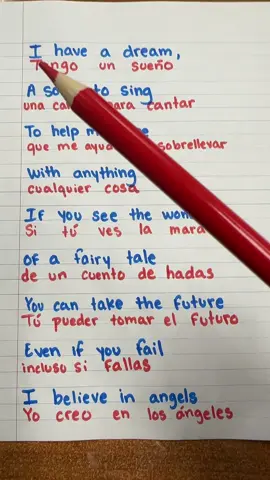 I have a dream,
Tengo un sueño
A so to sing
una ca para cantar
To help m
que me ayu sobrellevar
with anything
cualquier cosa
If you see the won
Si tú ves la mara
of a fairy tale
de un cuento de hadas
You can take the future
Tú pueder tomar el Futuro
Even if you fail
incluso si fallas
I believe in angels
Yo creo en los ángeles